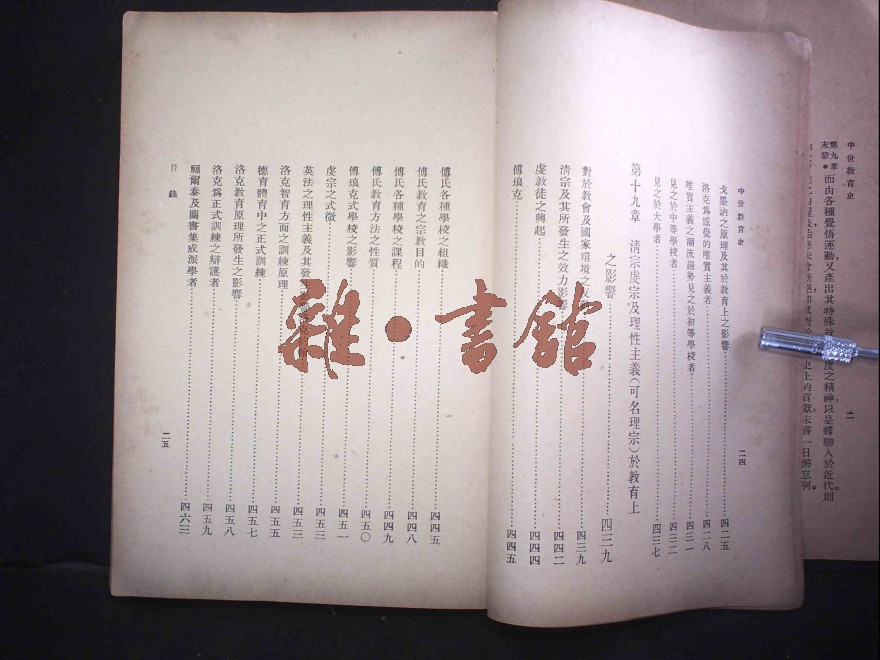 中世教育史
二
中世教育史
二四
戈墨訥之原理及其於教育上之影響 四二五
洛克爲感覺的唯實主義者 四二八
唯實主義之潮流趨勢見之於初等學校者 四三一
見之於中等學校者 四三二
見之於大學者 四三七
第十九章 淸宗虔宗及理性主義(可名理宗)於教育上
之影響 四三九
對於教會及國家環境之 四三九
淸宗及其所發生之效力影響 四四二
虔教徒之興起 四四四
傅琅克 四四五
傅氏各種學校之組織 四四五
傅氏教育之宗教目的 四四八
傅氏各種學校之課程 四四九
傅氏教育方法之性質 四五〇
傅琅克式學校之影響 四五一
虔宗之式微 四五三
英法之理性主義及其發 四五三
洛克智育方面之訓練原理 四五五
德育體育中之正式訓練 四五七
洛克教育原理所發生之影響 四五八
洛克爲正式訓練之辯護者 四五九
福爾泰及圖書集成派學者 四六三
目錄
二五
雜·書館